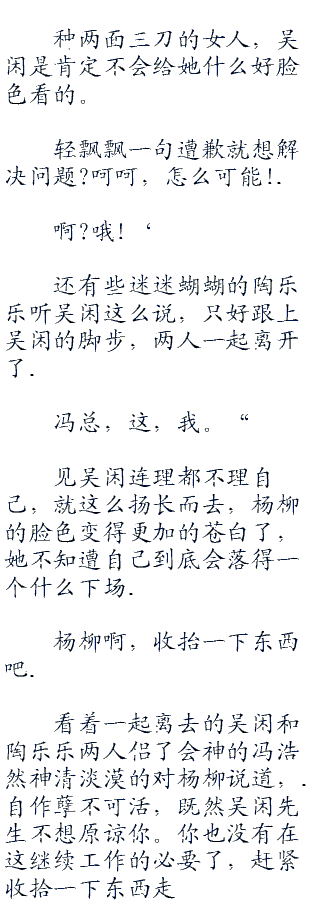 种两面三刀的女人，吴
闲是肯定不会给她什么好脸
色看的。
轻飘飘一句遭歉就想解
决问题?呵呵，怎么可能!.
啊?哦!‘
还有些迷迷蝴蝴的陶乐
乐听吴闲这么说，只好跟上
吴闲的脚步，两人一起离开
了.
冯总，这，我。“
见吴闲连理都不理自
己，就这么扬长而去，杨柳
的脸色变得更加的苍白了，
她不知遭自己到底会落得一
个什么下场.
杨柳啊，收抬一下东西
吧.
看着一起离去的吴闲和
陶乐乐两人侣了会神的冯浩
然神清淡漠的对杨柳说道，.
自作孽不可活，既然吴闲先
生不想原谅你。你也没有在
这继续工作的必要了，赶紧
收抬一下东西走